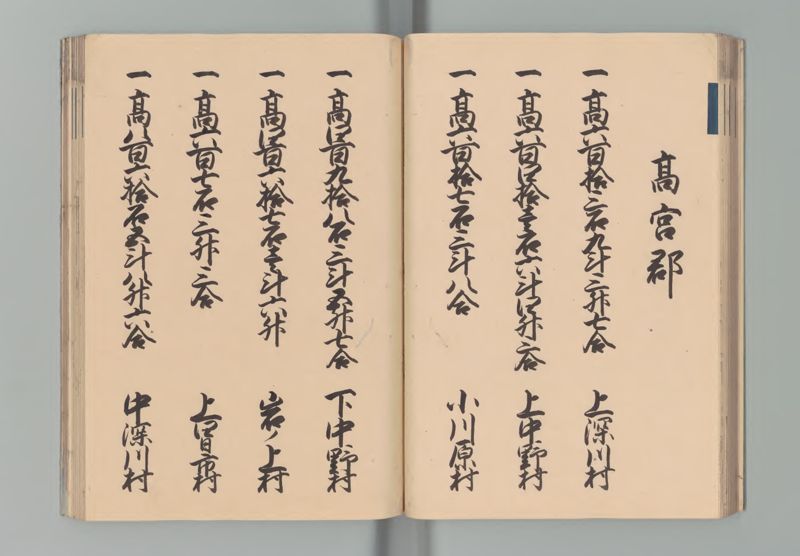 高宮郡
一高六百拾二石九斗二升七合 上深川村
一高六百四拾壱石六斗四升二合 上中野村
一高六百拾七石二斗八合 小川原村
一高四百九拾八石二斗五升七合 下中野村
一高四百六拾七石壱斗六升 岩ノ上村
一高六百十石二升二合 上四日市村
一高八百六拾石五斗八升六合 中深川村